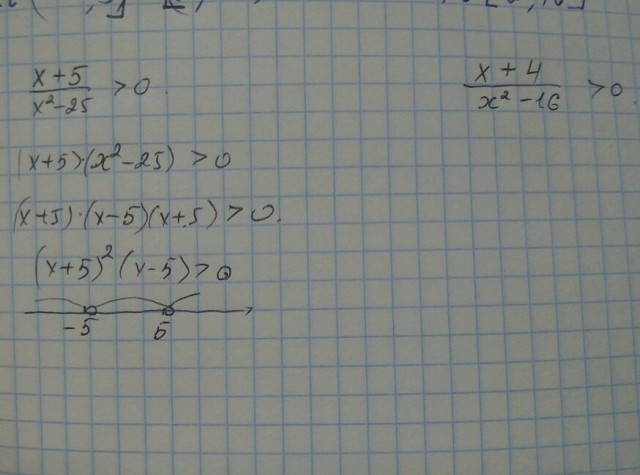 x+5 / x²-25 > 0.
x+4 / x²-16 > 0.
(x+5)·(x²-25) > 0
(x+5)·(x-5)(x+5) > 0.
(x+5)²(x-5) > 0
-5 5